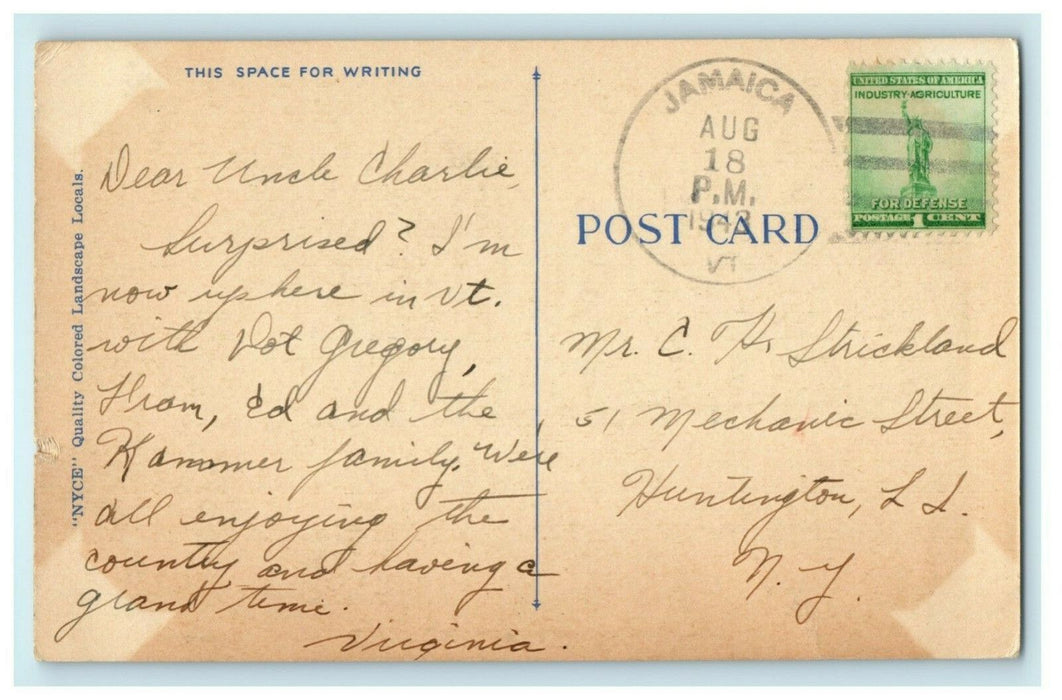 THIS SPACE FOR WRITING
"NYCE" Quality Colored Landscape Locals.
Dear Uncle Charlie,
Surprised? I'm
now up here in Vt.
with Dot Gregory,
Hram, Ed and the
Kammer family. We're
all enjoying the
country and having a
grand time.
Virginia.
JAMAICA
AUG
18
P.M.
1942
VT
UNITED STATES OF AMERICA
INDUSTRY·AGRICULTURE
FOR DEFENSE
POSTAGE 1 CENT
POST CARD
Mr. C. H. Strickland
51 Mechanic Street,
Huntington, L I.
N. Y.